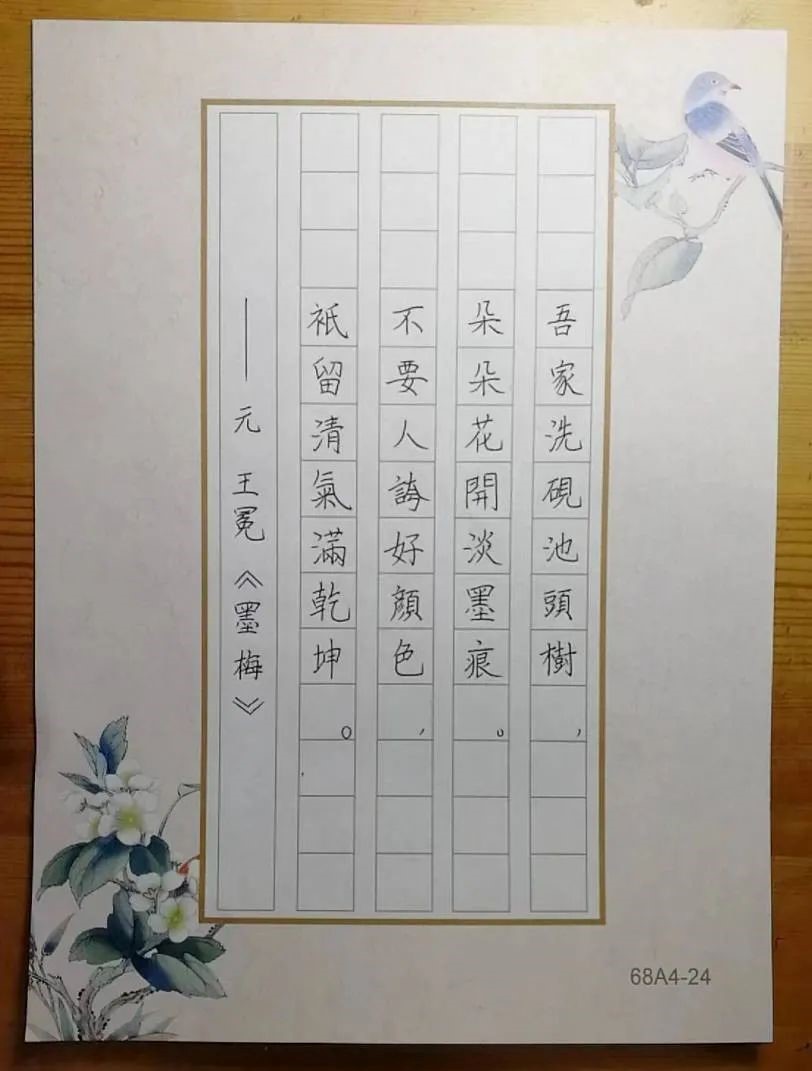 吾家洗硯池頭樹，
朵朵花開淡墨痕。
不要人誇好顏色，
祇留清氣滿乾坤。
——元 王冕《墨梅》
68A4-24